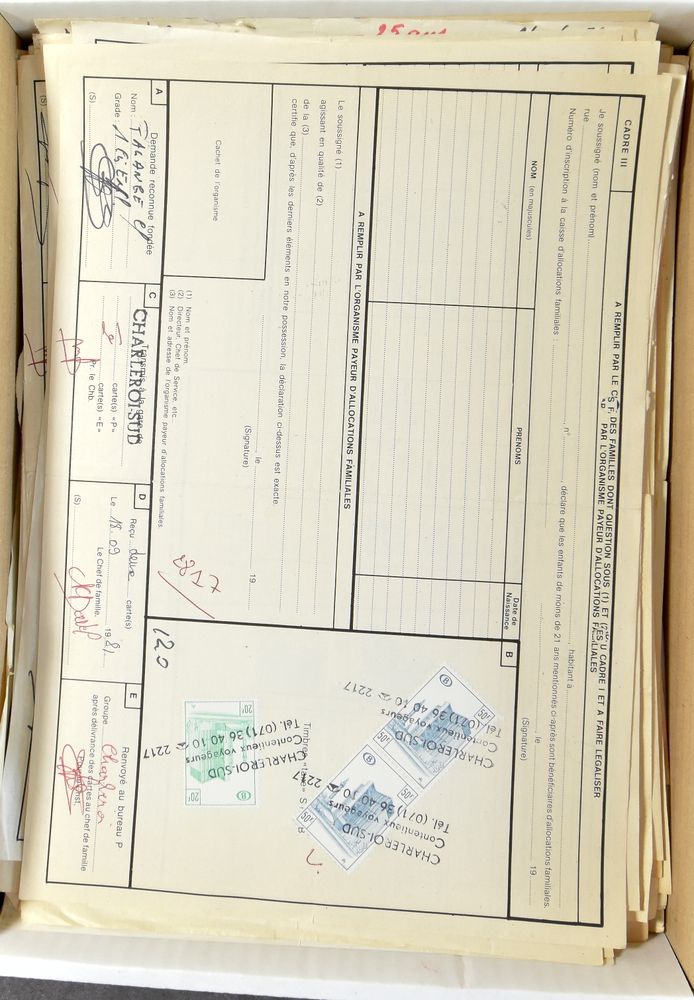 25 ans
CADRE III
A REMPLIR PAR LE C
S F. DES FAMILLES DONT QUESTION SOUS (1) ET
U CADRE I ET A FAIRE LEGALISER
PAR L'ORGANISME PAYEUR D'ALLOCATIONS FAMILIALES
Je soussigné (nom et prénom)
habitant à
rue
n°
, déclare que les enfants de moins de 21 ans mentionnés ci-après sont bénéficiaires d'allocations familiales.
Numéro d'inscription à la caisse d'allocations familiales :
, le 19
(Signature)
NOM (en majuscules)
PRENOMS
Date de Naissance
A REMPLIR PAR L'ORGANISME PAYEUR D'ALLOCATIONS FAMILIALES
Le soussigné (1)
agissant en qualité de (2)
de la (3)
certifie que, d'après les derniers éléments en notre possession, la déclaration ci-dessus est exacte.
, le 19
(Signature)
Cachet de l'organisme
(1) Nom et prénom.
(2) Directeur, Chef de Service, etc.
(3) Nom et adresse de l'organisme payeur d'allocations familiales.
2217
B
120
Timbres
50F
B
50F
B
50F
CHARLEROI-SUD
Contentieux voyageurs
Tél. (071) 36 40 10 2217
CHARLEROI-SUD
Contentieux voyageurs
Tél. (071) 36 40 10 2217
20F
B
20F
CHARLEROI-SUD
Contentieux voyageurs
Tél. (071) 36 40 10 2217
A
Demande reconnue fondée
Nom :
Grade :
(S)
C
CHARLEROI-SUD
carte(s) «P»
carte(s) «E»
Pr. le Chb.
D
Reçu deux carte(s)
Le 18.09 1981
Le Chef de famille,
(S)
E
Renvoyé au bureau P
Groupe Charleroi
après délivrance des cartes au chef de famille